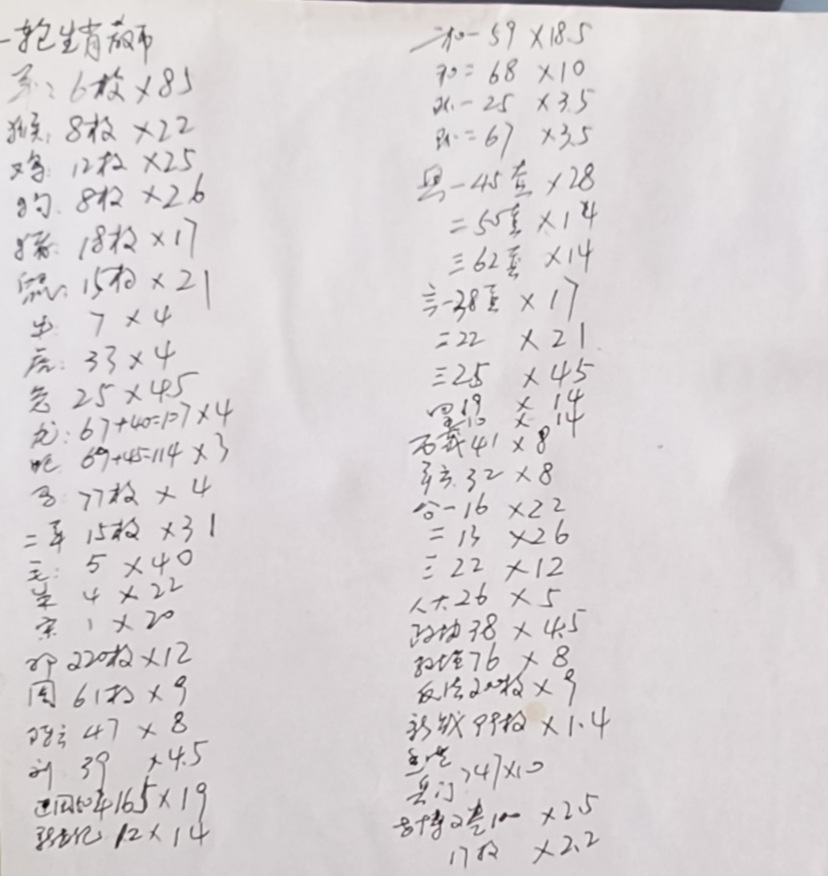 生肖
羊: 6枚×85
猴: 8枚×22
鸡: 12枚×25
狗: 8枚×26
猪: 18枚×17
鼠: 15枚×21
牛 7×4
虎: 33×4
兔 25×4.5
龙: 67+40=107×4
蛇 69+45=114×3
马: 77枚×4
二 15枚×31
毛: 5×40
朱 4×22
宋 1×20
邓 220枚×12
周 61枚×9
陈云 47×8
刘 39 ×4.5
建国50年165×19
新世纪 12×14
二和一59×18.5
和二68×10
一25×3.5
二67×3.5
奥一45套×28
二50套×14
三62套×14
一38套×17
二22×21
三25×45
四19×14
10×14
41×8
32×8
合一16×22
二13×26
三22×12
人大26×5
政协38×4.5
76×8
反法200枚×9
99枚×1.4
747×10
100×2.5
17枚×2.2